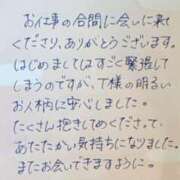 お仕事の合間に会いに来て
くださり、ありがとうございます。
はじめましてはすごく緊張して
しまうのですが、T様の明るい
お人柄に安心しました。
たくさん抱きしめてくださって、
あたたかい気持ちになりました。
またお会いできますように。